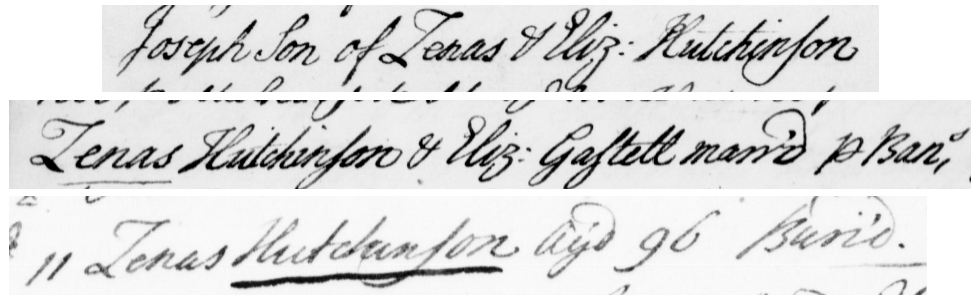 Joseph Son of Zenas & Eliz: Hutchinson
Zenas Hutchinson & Eliz: Gastell marri'd p Ban.s
11 Zenas Hutchinson Ag'd 96 Buri'd.